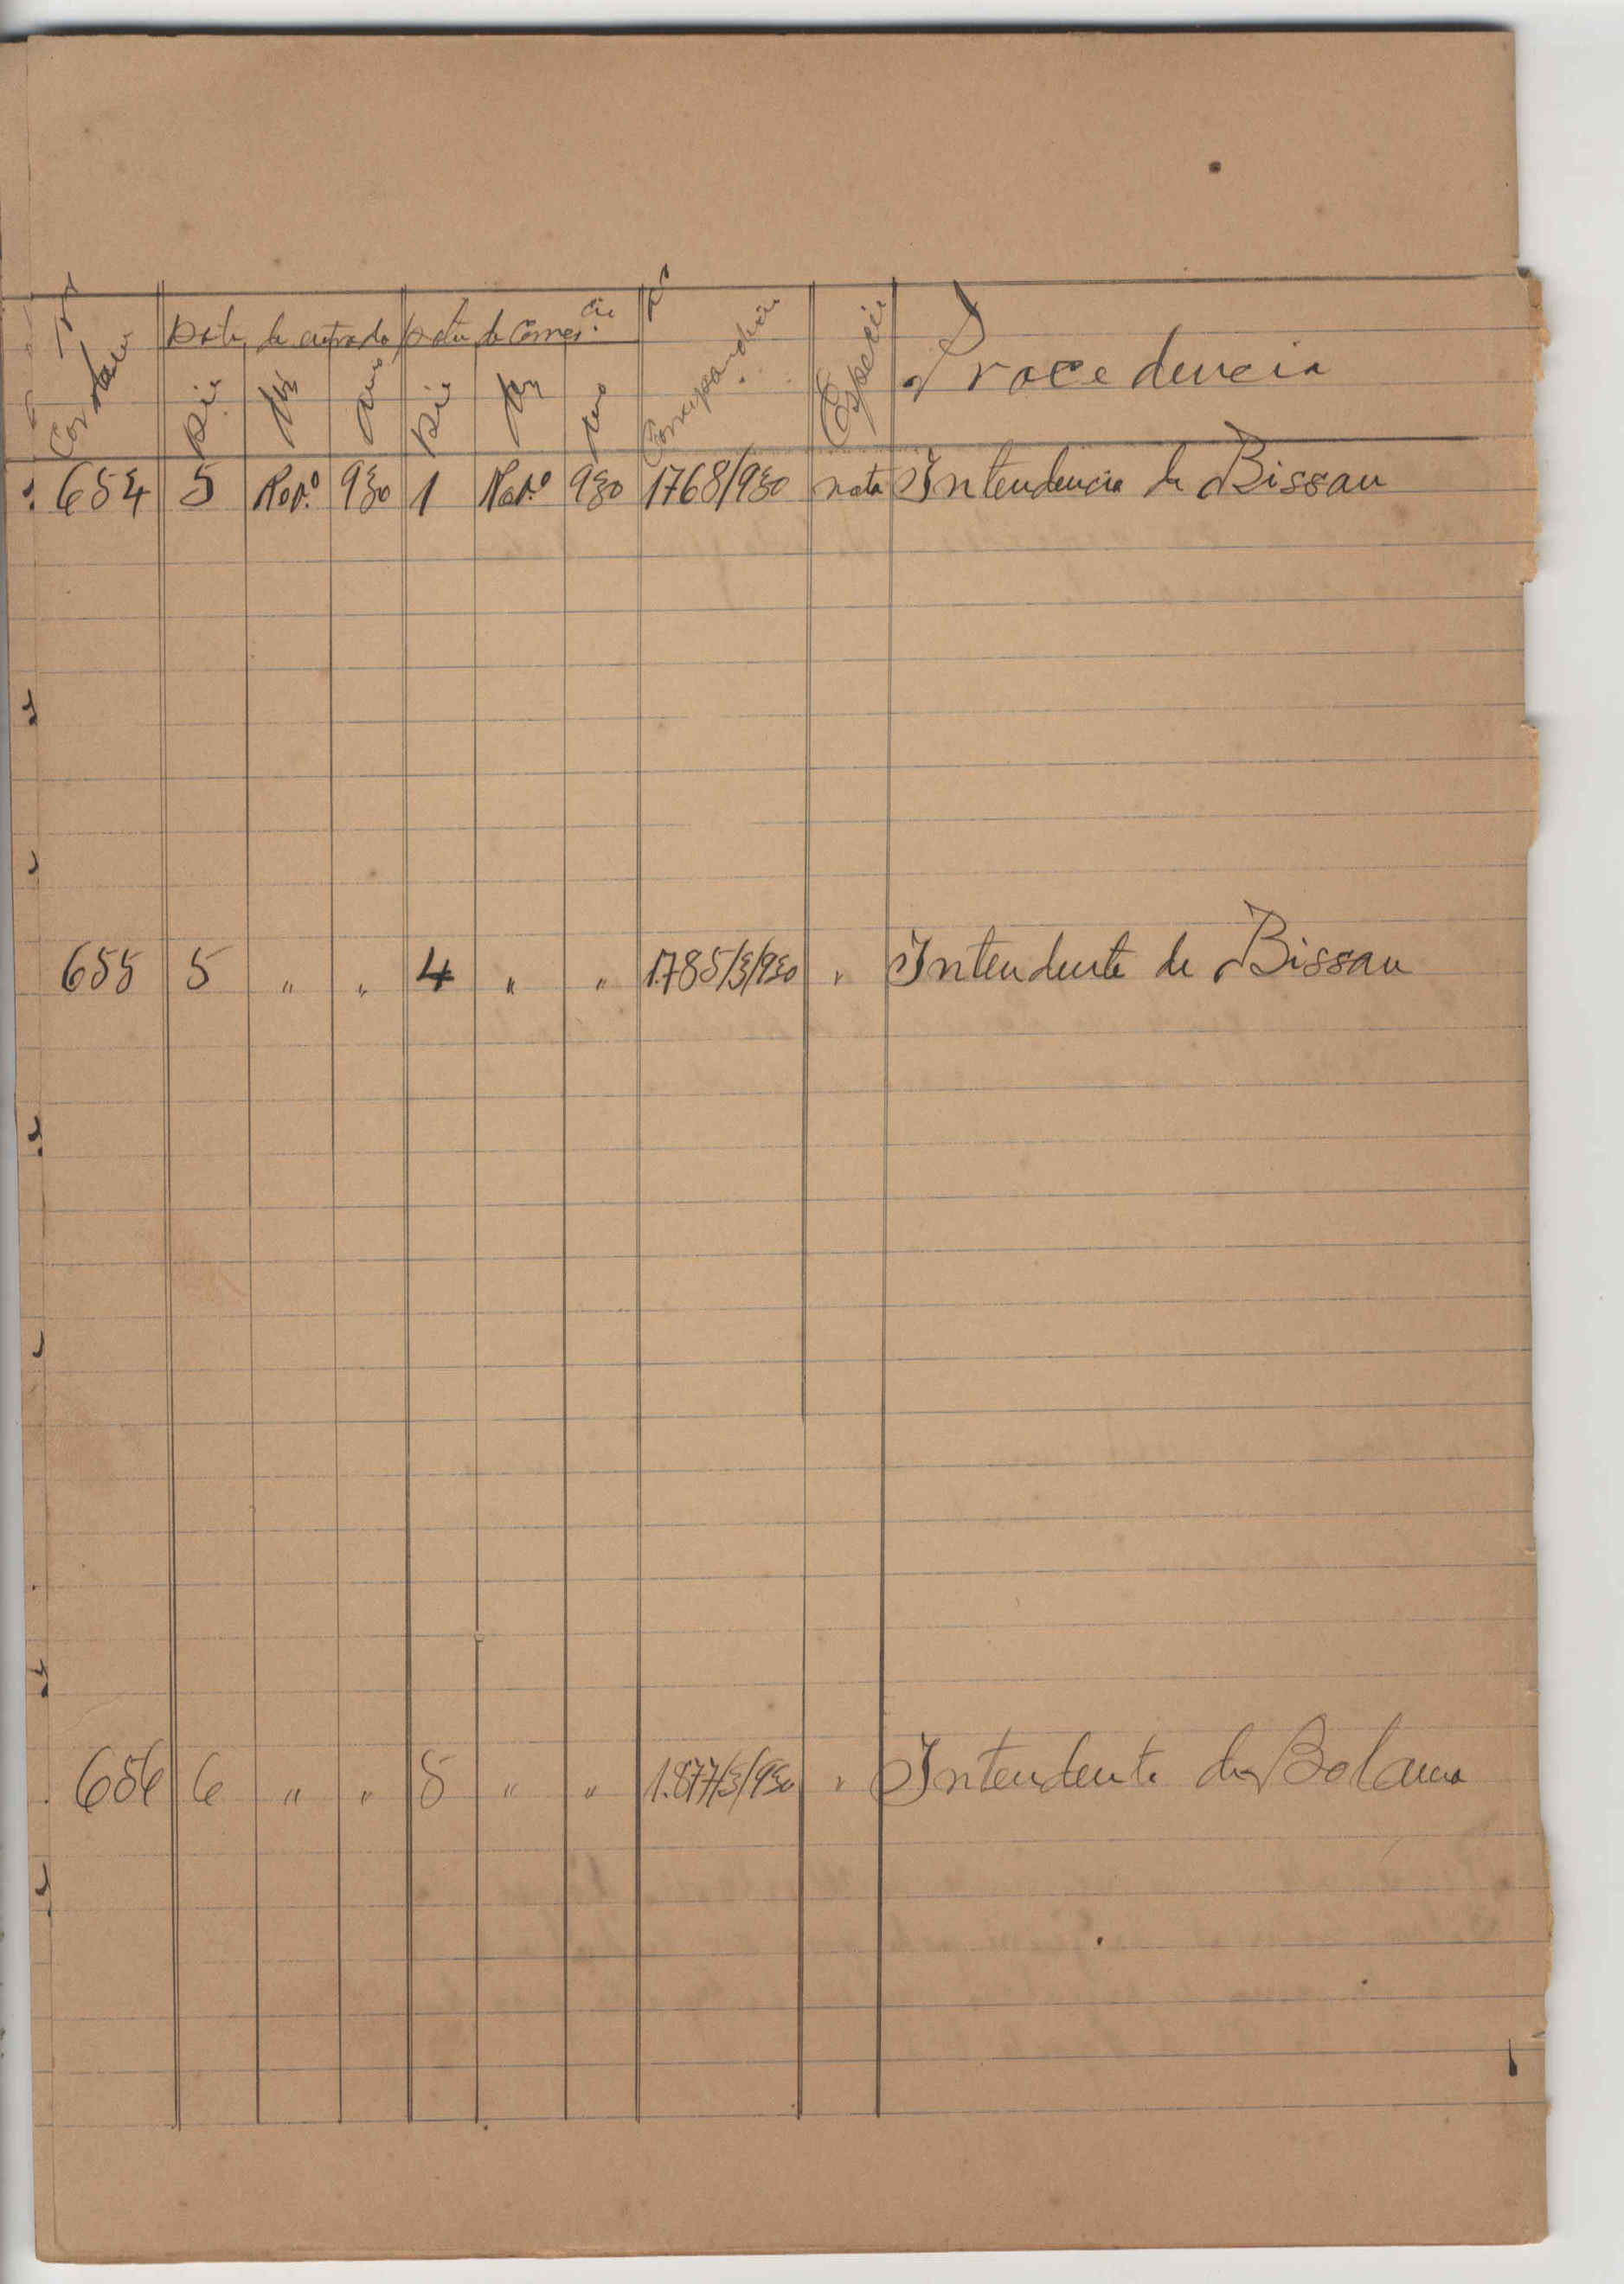 Nº Data de entrada Data de Corres.cia Nº
Corrdem Dia Mês Ano Dia Mês Ano Correspondencia Especie Procedencia
654 5 Nov.º 930 1 Nov.º 930 1768/930 nota Intendencia de Bissau
655 5 " " 4 " " 1.785/3/930 " Intendente de Bissau
656 6 " " 5 " " 1.877/3/930 " Intendente de Bolama